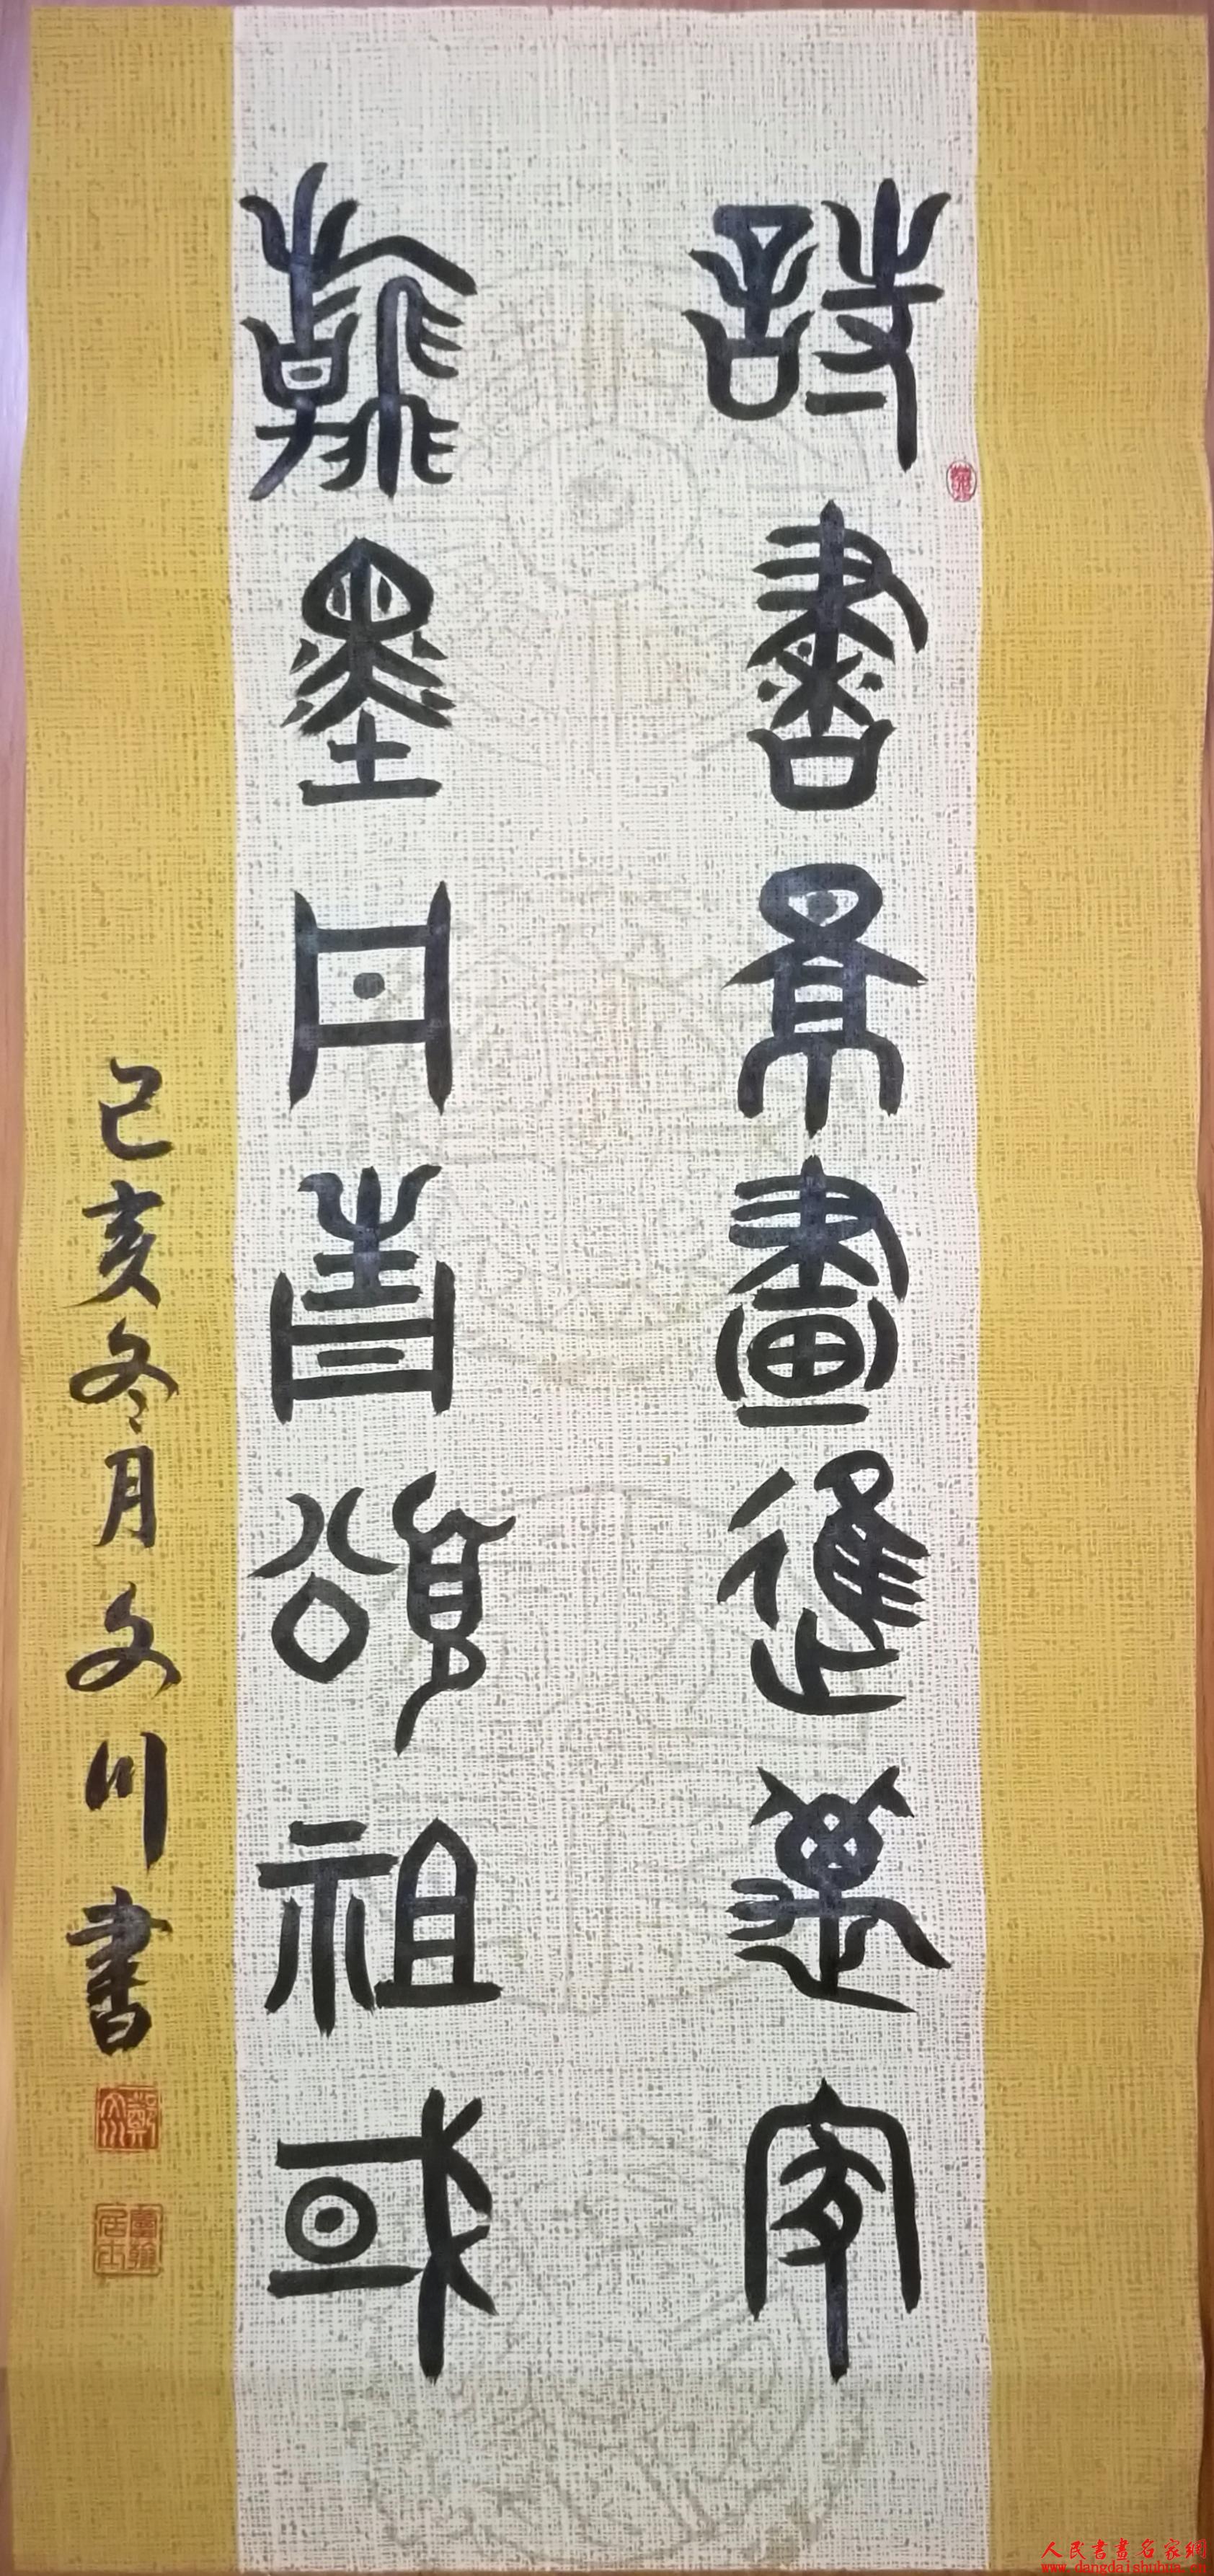 詩書畫進萬家
翰墨丹青頌祖國
己亥冬月文川書
人民書畫名家網
www.dangdaishuhua.cn